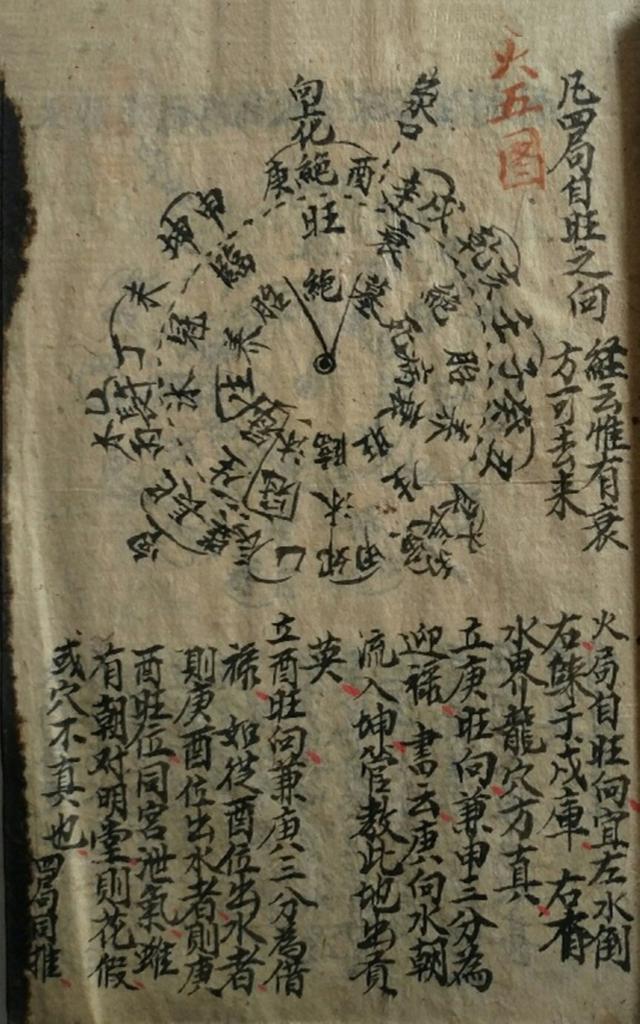 火五图
凡四局自旺之向
経云惟有衰
方可去来
向上花
庚 絶 酉
旺
絶
墓
死
病
衰
旺
臨
冠
沐
生
养
胎
衰
絶
胎
养
生
沐
冠
臨
戌
乾
亥
壬
子
癸
丑
卯
乙
辰
巳
丁
未
坤
申
火局自旺向宜左水倒
右
于戌庫
右有
水界龍穴方真
立庚旺向兼申三分為
迎禄
書云庚向水朝
流入坤管教此地出貢
英
立酉旺向兼庚三分為借
禄
如従酉位出水者
則庚酉位出水者則庚
酉旺位同宮泄氣雖
有朝对明堂則花假
或穴不真也
四局同推